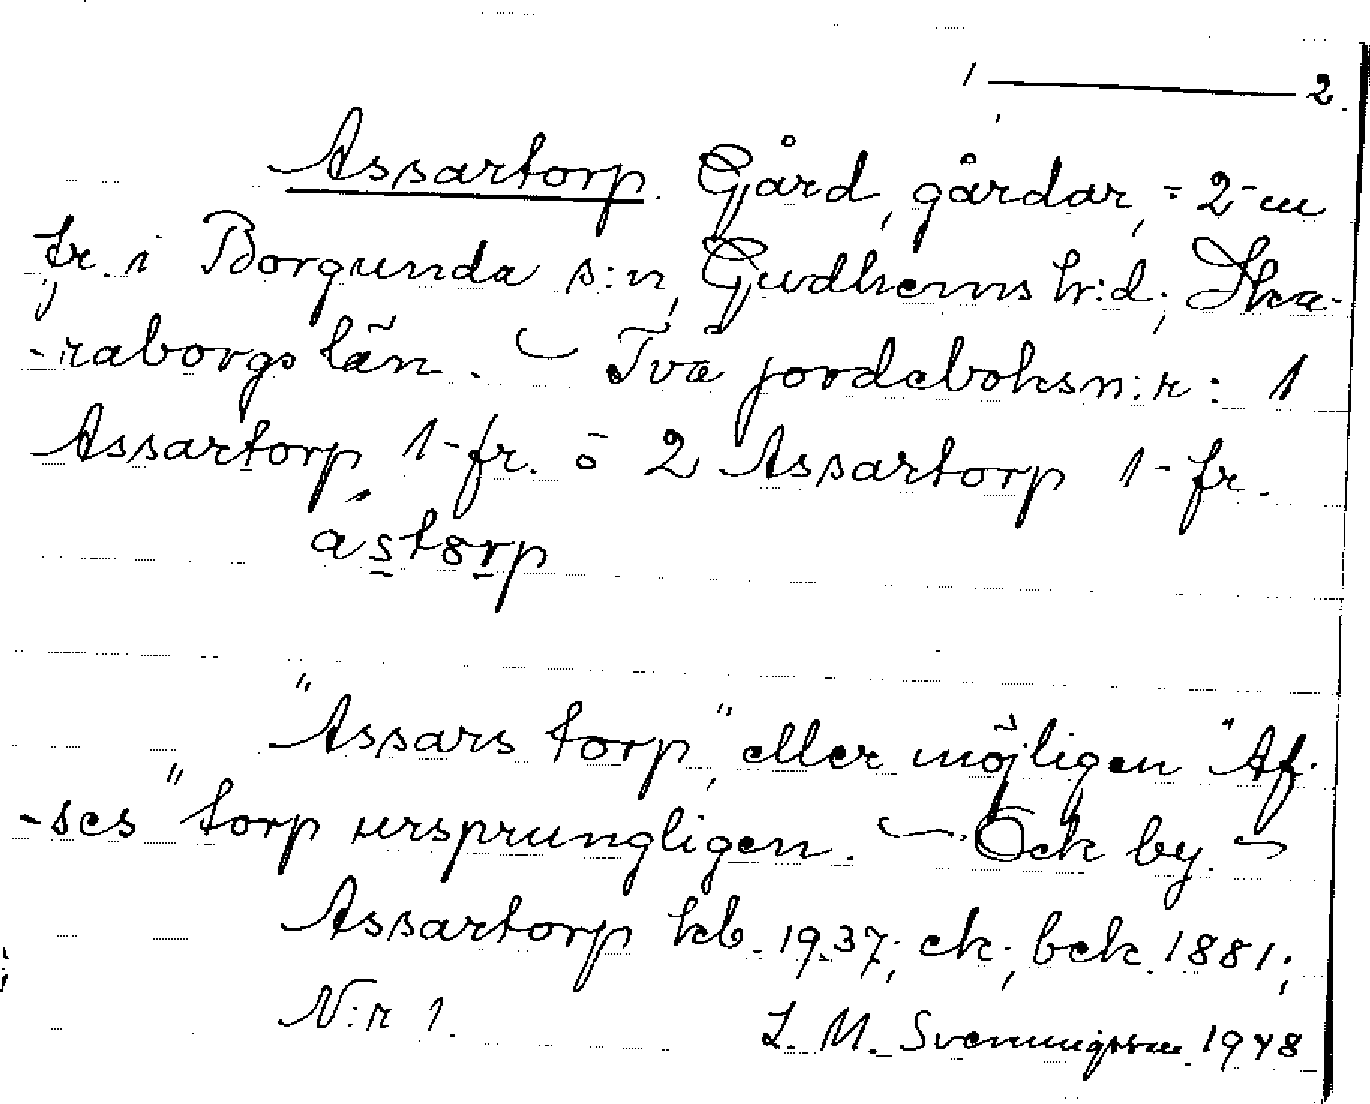 1 ——— 2.
Assartorp. Gård, gårdar, = 2 m
fr. i Borgunda s:n, Gudhems hr:d; Ska-
-raborgs län. — Två jordeboksn:r: 1
Assartorp 1-fr. o 2 Assartorp 1-fr.
ástorp
"Assars torp", eller möjligen "Af-
-ses" torp ursprungligen. — Ock by. —
Assartorp kb. 1937; ek; bek 1881;
N:r 1. L. M. Svenungsson 1948